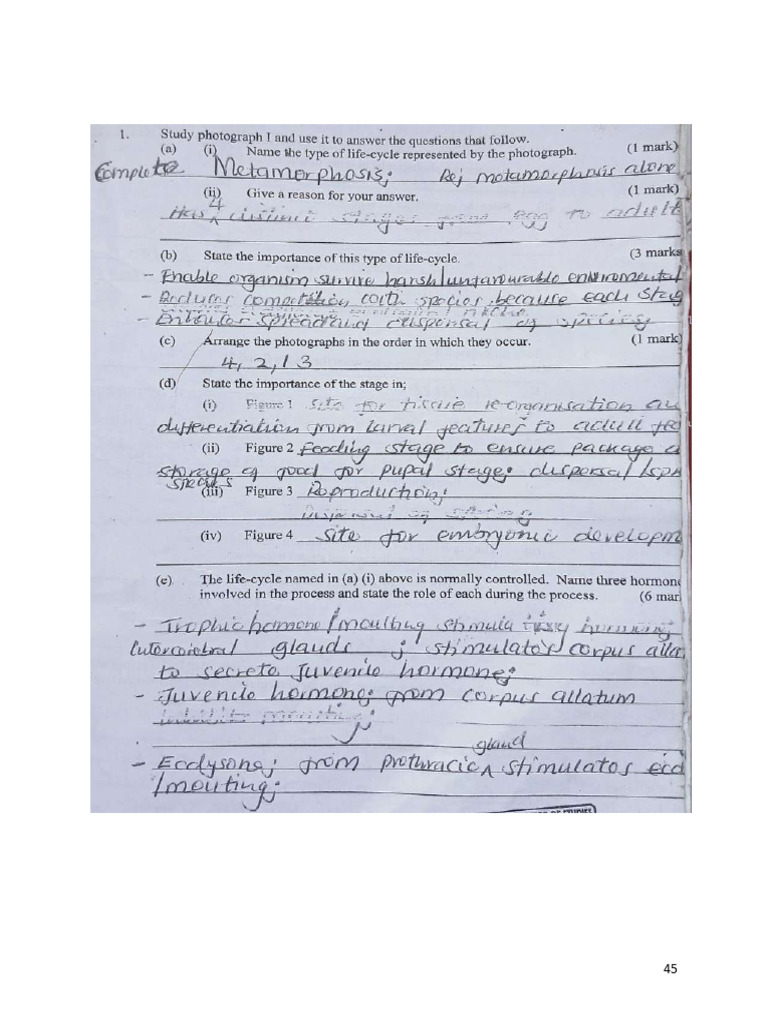 1. Study photograph I and use it to answer the questions that follow.
(a) (i) Name the type of life-cycle represented by the photograph. (1 mark)
Complete Metamorphosis; Rej metamorphosis alone
(ii) Give a reason for your answer. (1 mark)
Has 4 distinct stages from egg to adult
(b) State the importance of this type of life-cycle. (3 marks
- Enable organism survive harsh/unfavourable enviromental
- Reduces competition with species because each stag
- spreading dispersal of species
(c) Arrange the photographs in the order in which they occur. (1 mark)
4, 2, 1 3
(d) State the importance of the stage in;
(i) Figure 1 Site for tissue re-organisation an
differentiation from larval features to adult
(ii) Figure 2 Feeding stage to ensure package
storage of food for pupal stage; dispersal
species
(iii) Figure 3 Reproduction;
Dispersal of
(iv) Figure 4 Site for embryonic developm
(e) The life-cycle named in (a) (i) above is normally controlled. Name three hormon
involved in the process and state the role of each during the process. (6 mar
- Trophic homone/moulting hormone;
glands ; stimulates corpus alla
to secrete Juvenile hormone;
- Juvenile hormone; from corpus allatum
gland
- Ecdysone; from prothoracic ^ stimulates ecd
/mouting;
45